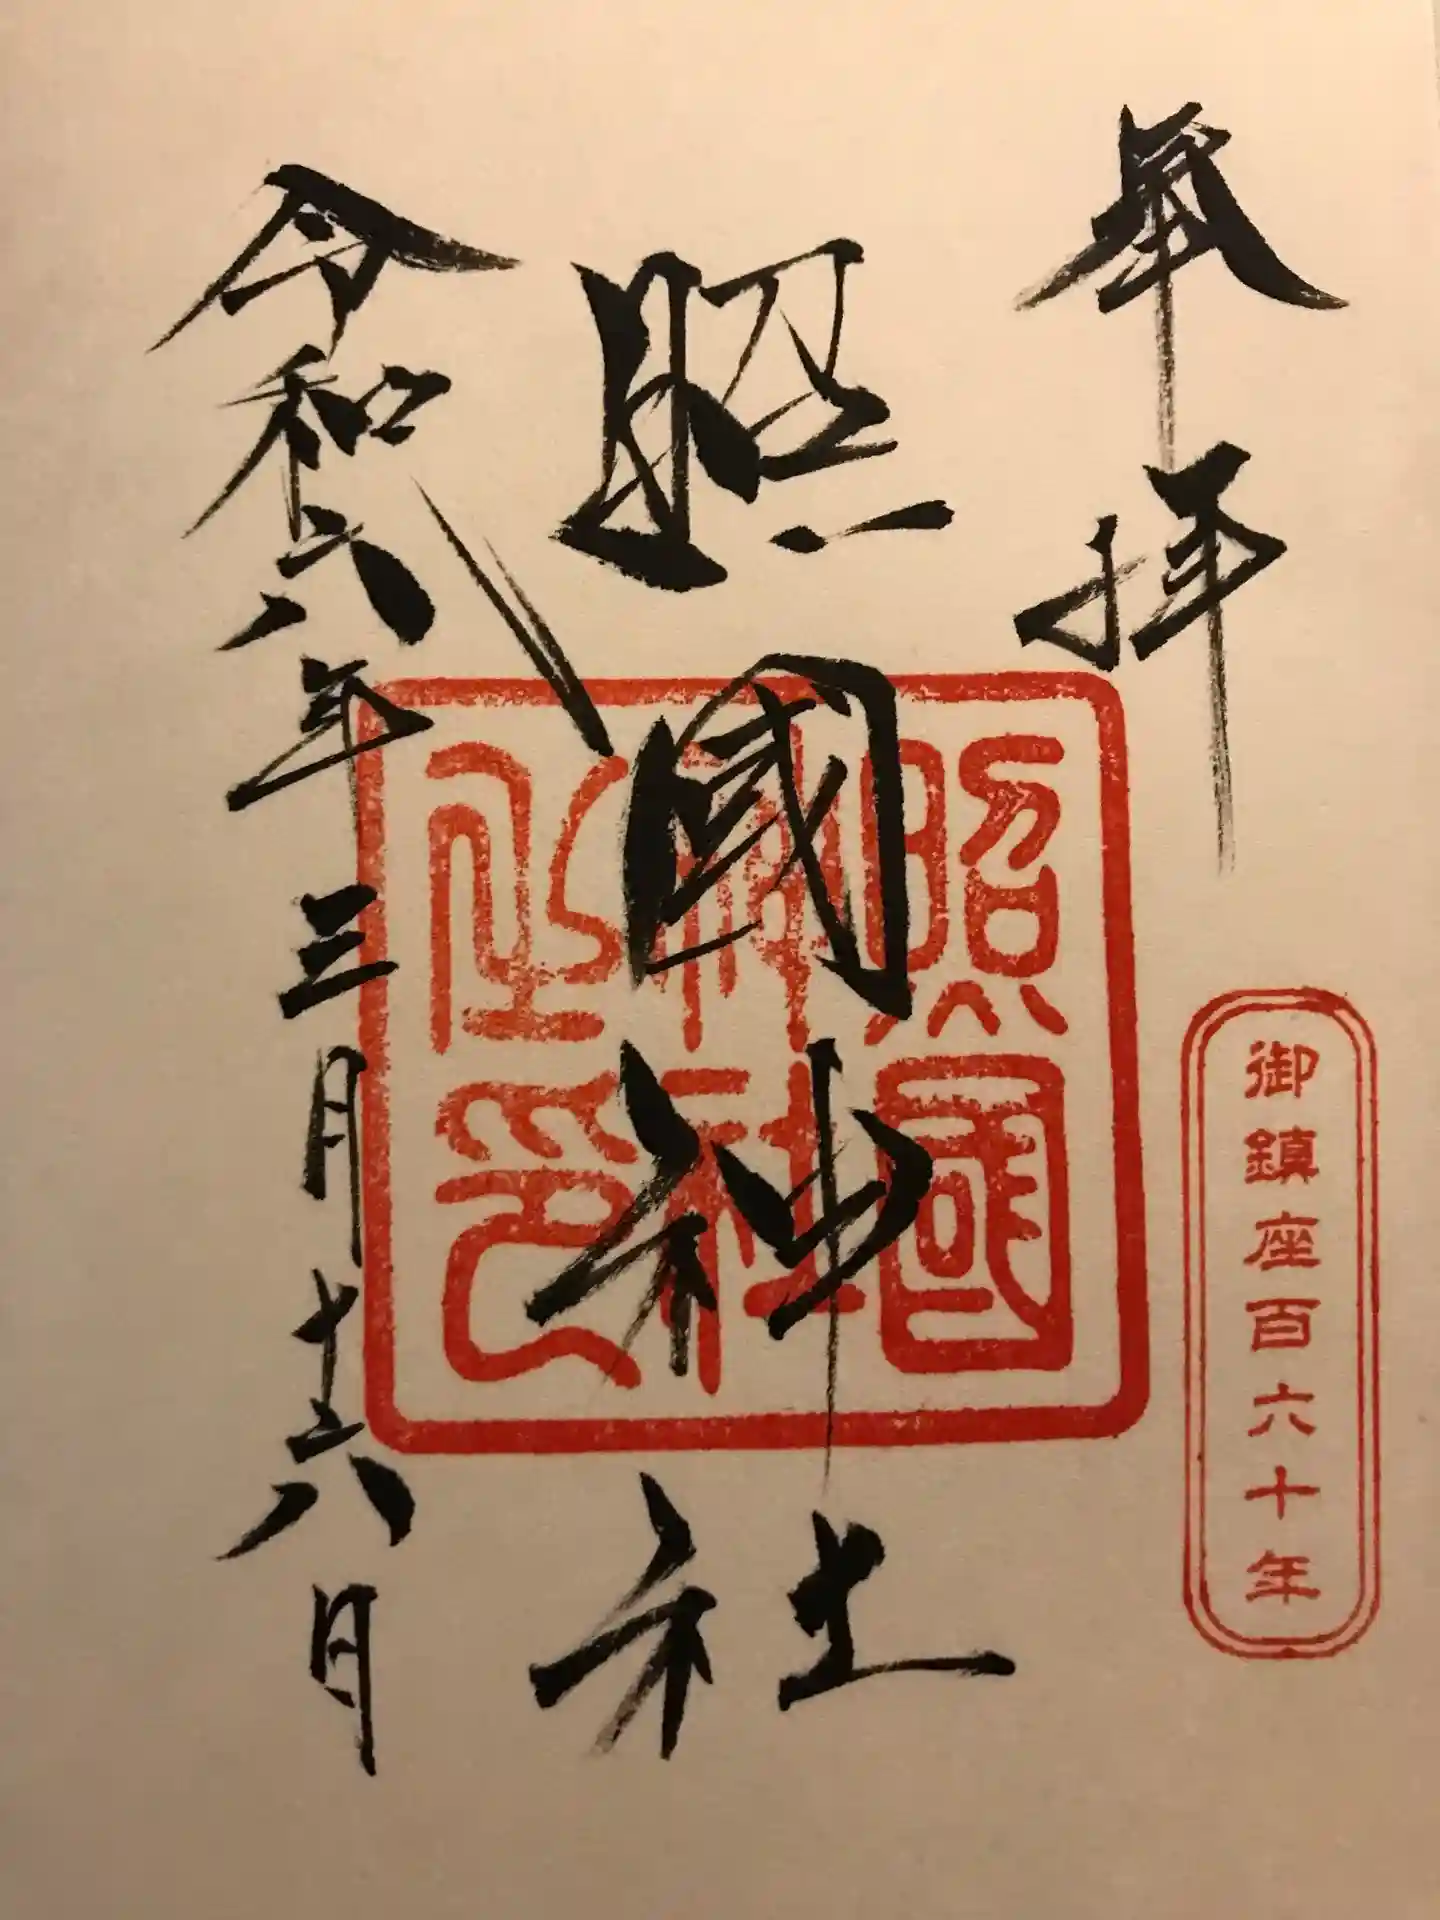 奉拝
御鎮座百六十年
照國神社
照國
神社
之印
令和六年三月十六日